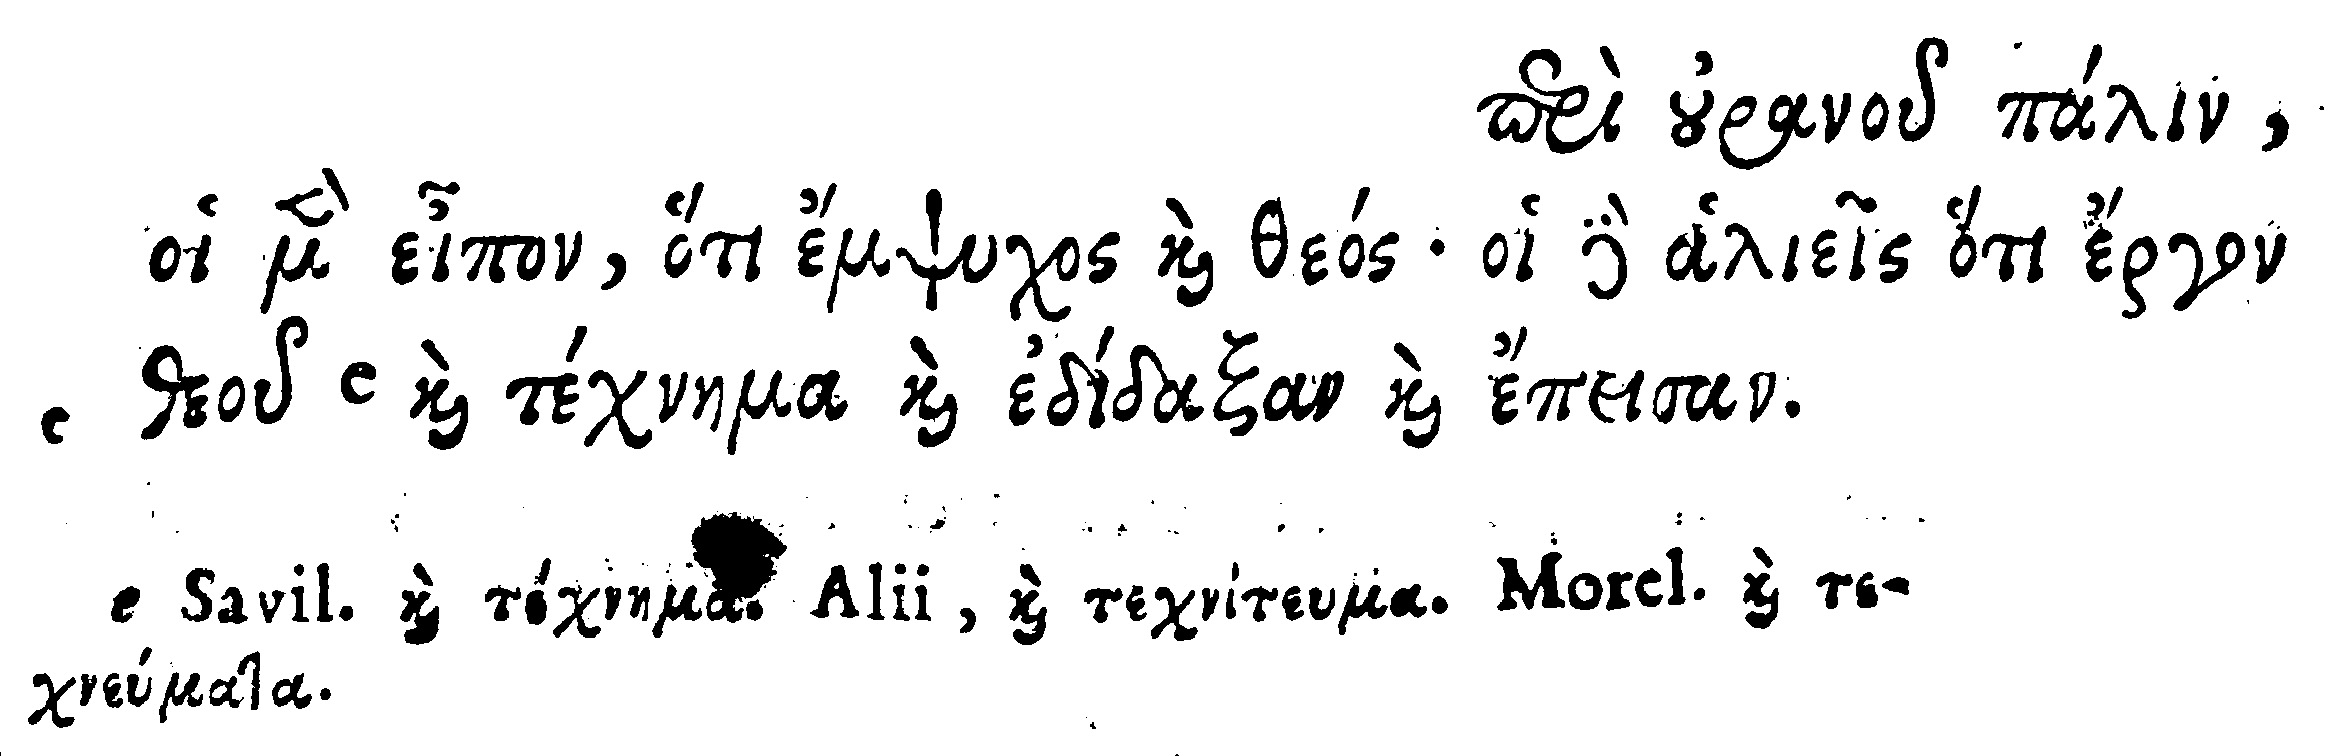 περὶ οὐρανοῦ πάλιν,
οἱ μὲν εἶπον, ὅτι ἔμψυχος καὶ θεός· οἱ δὲ ἁλιεῖς ὅτι ἔργον
c θεοῦ c καὶ τέχνημα καὶ ἐδίδαξαν καὶ ἔπεισαν.
c Savil. καὶ τέχνημα. Alii, καὶ τεχνίτευμα. Morel. καὶ τε-
χνεύματα.